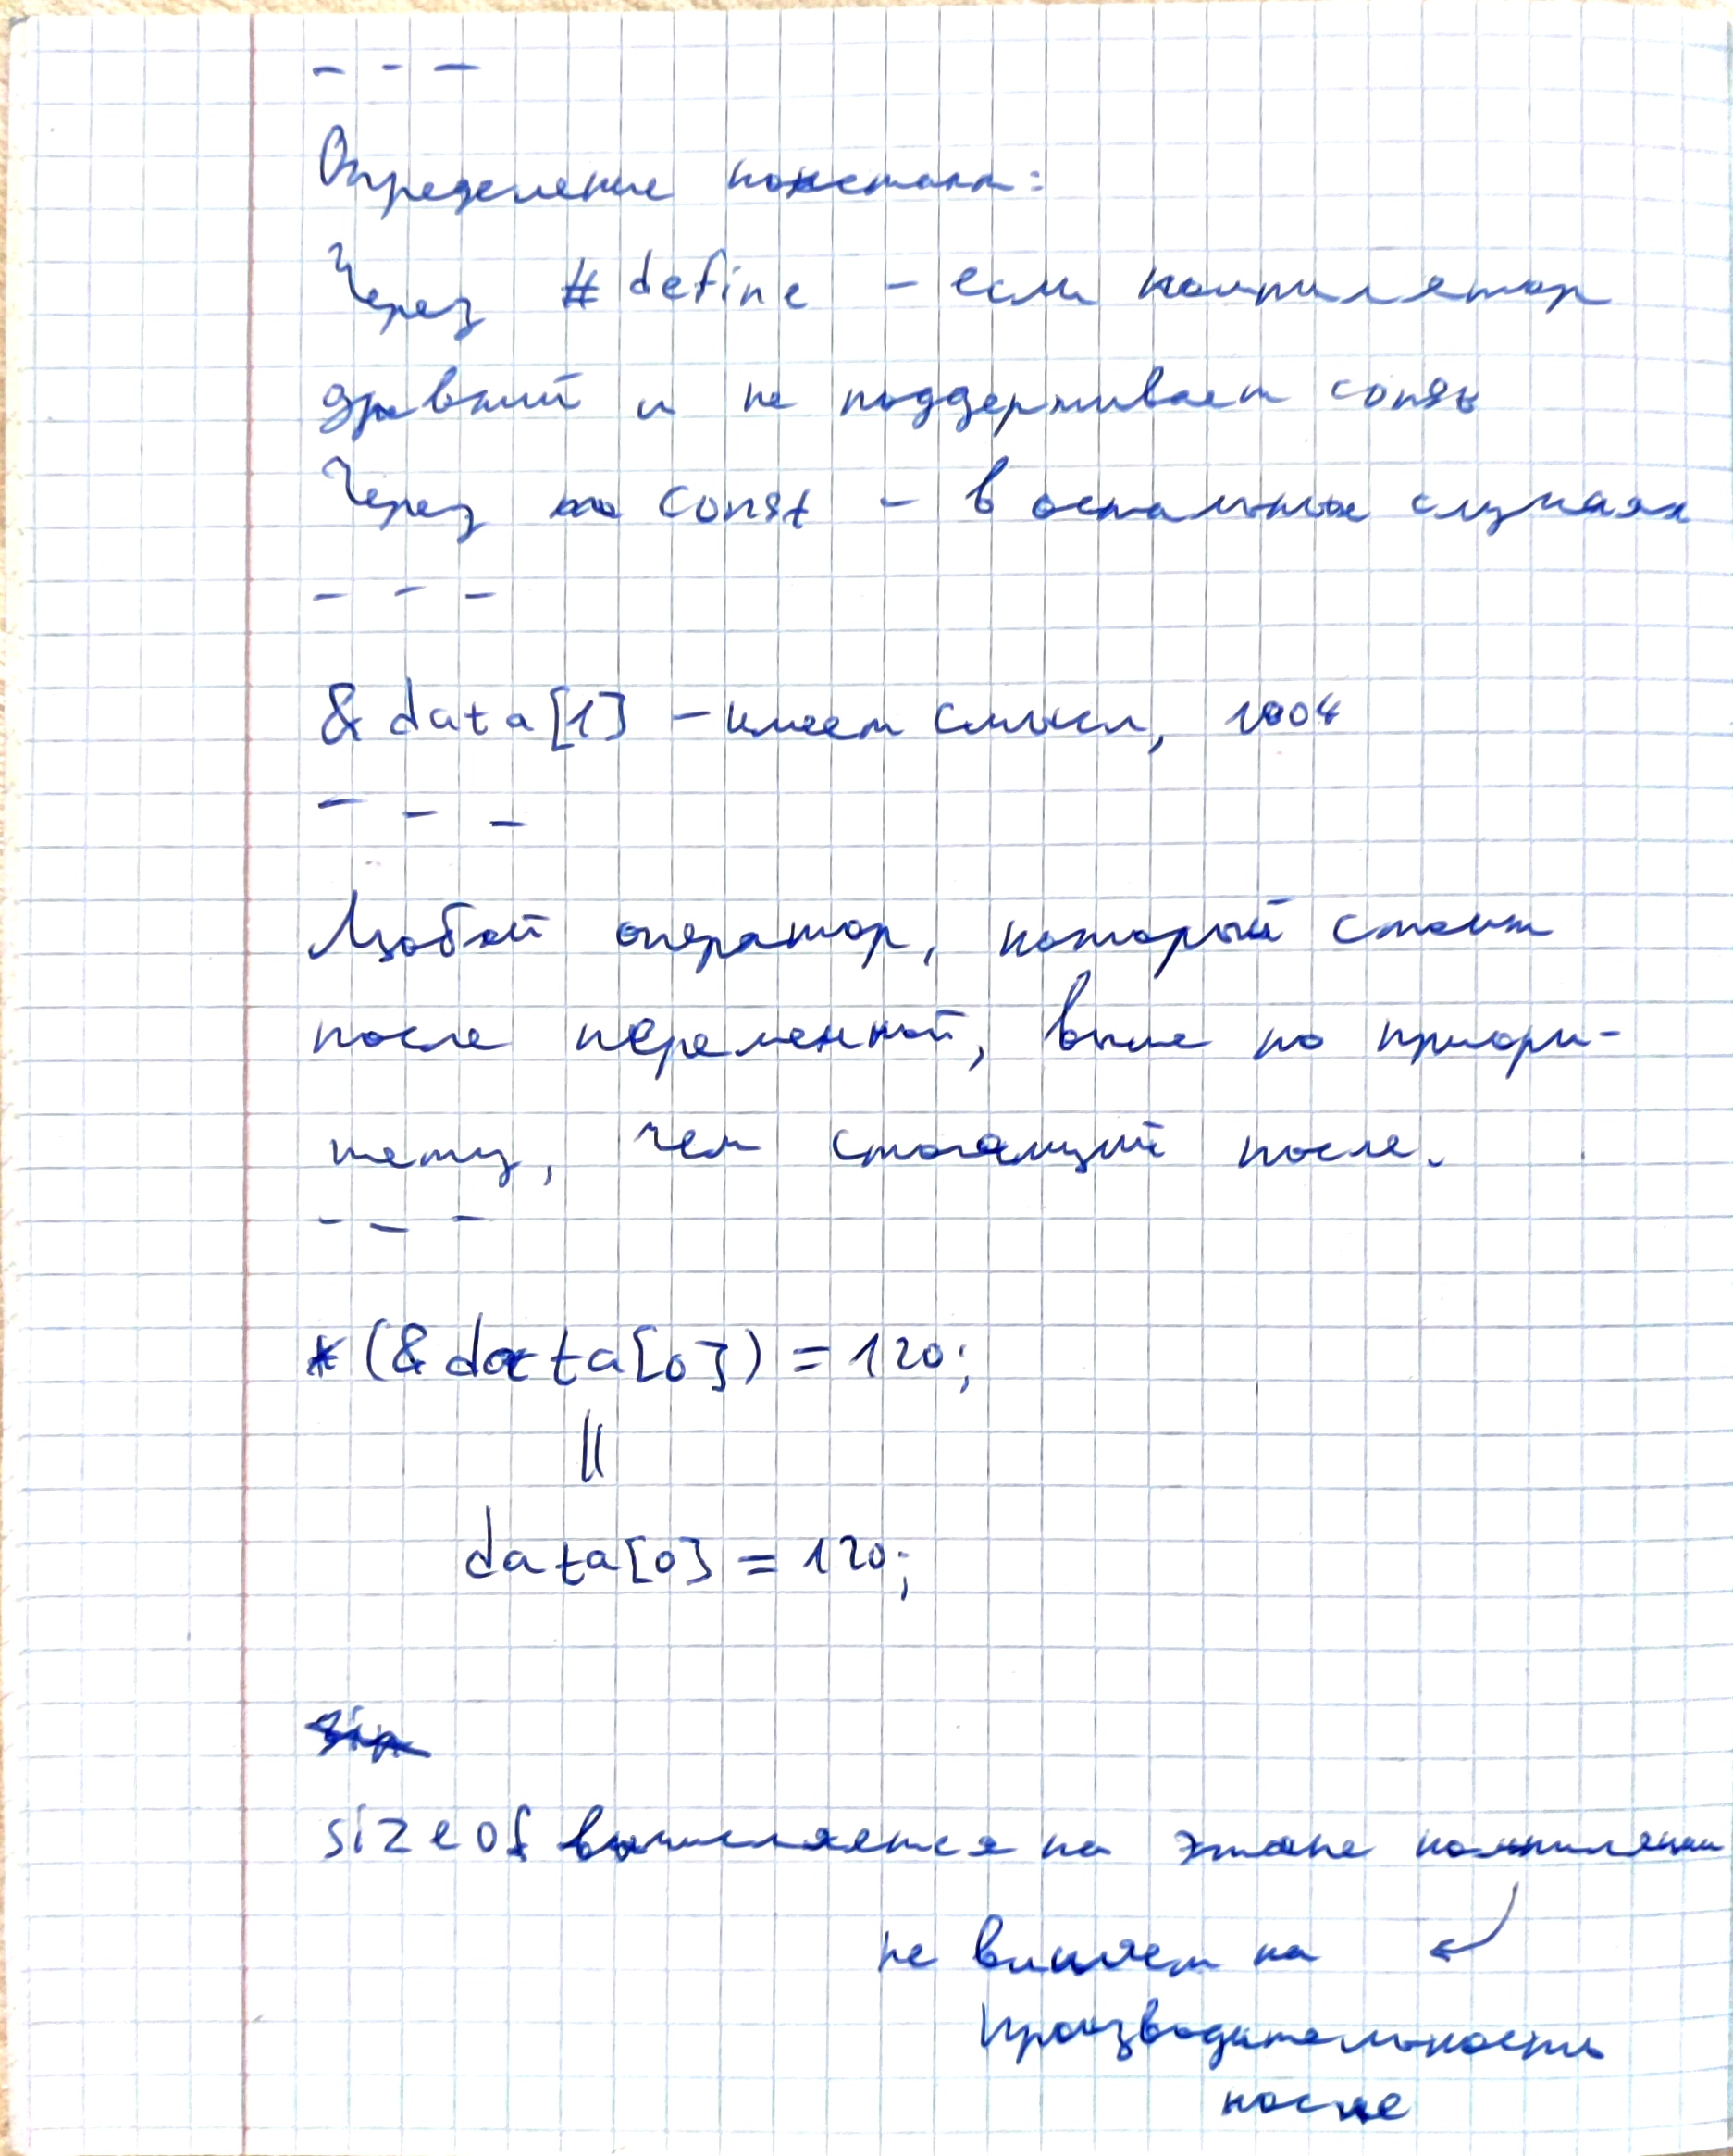 - - -
Определение констант:
Через #define - если компилятор
древний и не поддерживает const
Через const - в остальных случаях
- - -
&data[1] - имеет смысл, 1004
- - -
Любой оператор, который стоит
после переменной, выше по приори-
тету, чем стоящий после.
- - -
*(&data[0]) = 120;
||
data[0] = 120;
sizeof вычисляется на этапе компиляции
не влияет на
производительность
после